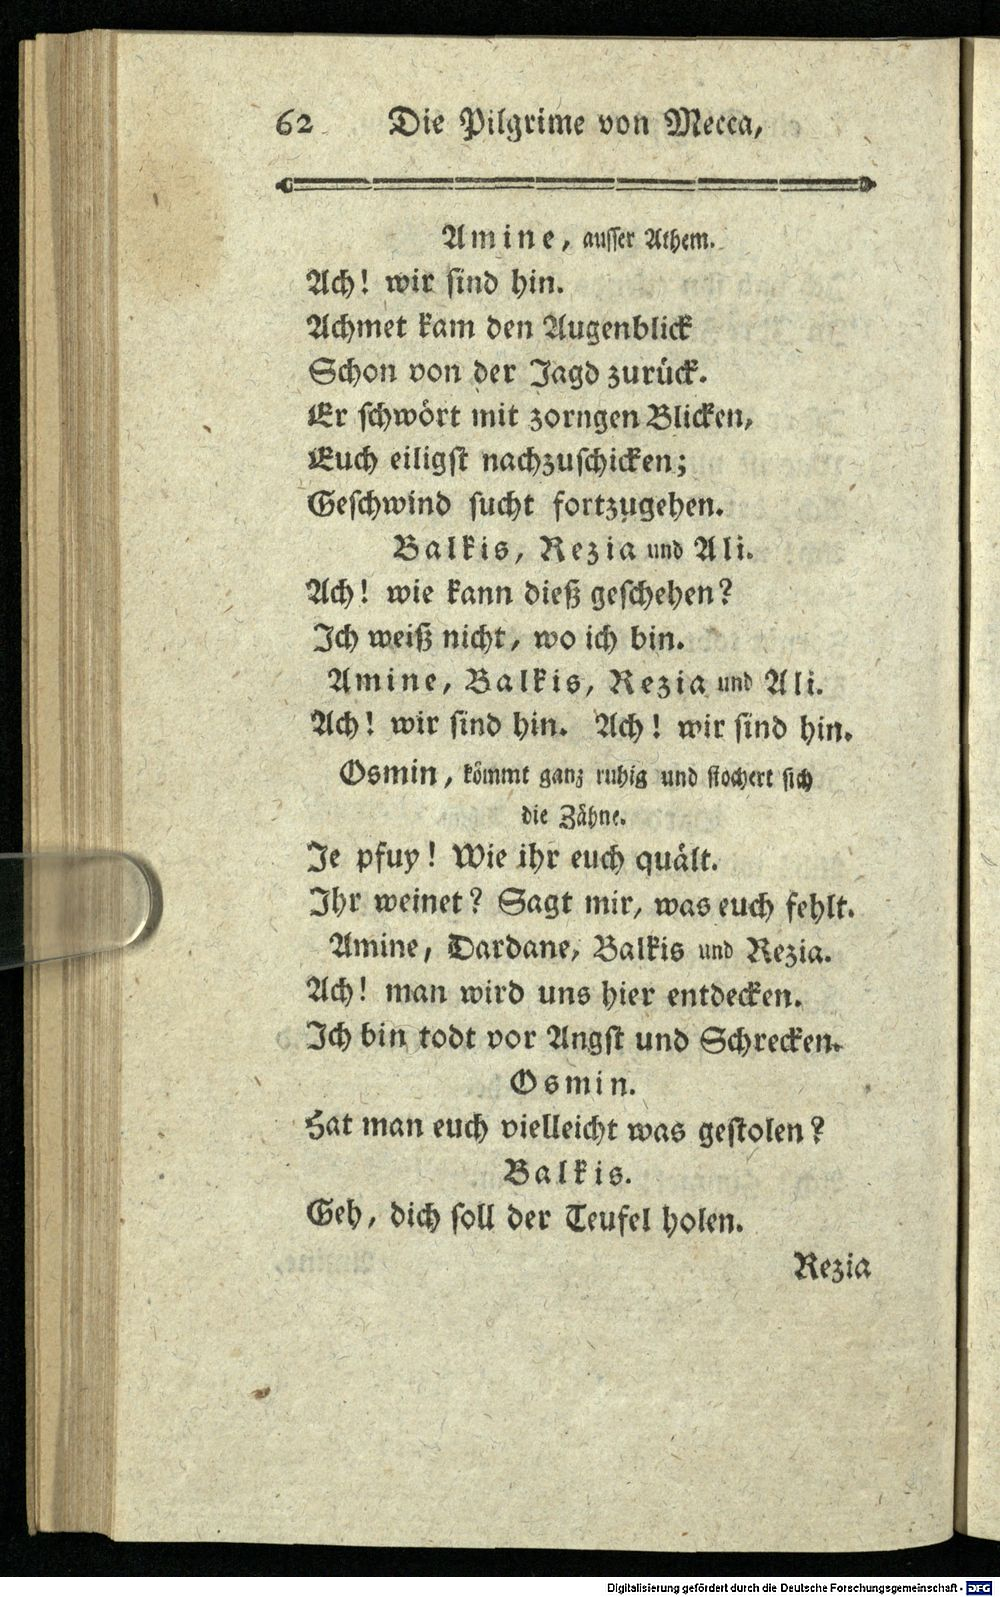 62 Die Pilgrime von Mecca,
Amine, ausser Athem.
Ach! wir sind hin.
Achmet kam den Augenblick
Schon von der Jagd zurück.
Er schwört mit zorngen Blicken,
Euch eiligst nachzuschicken;
Geschwind sucht fortzugehen.
Balkis, Rezia und Ali.
Ach! wie kann dieß geschehen?
Ich weiß nicht, wo ich bin.
Amine, Balkis, Rezia und Ali.
Ach! wir sind hin. Ach! wir sind hin.
Osmin, kömmt ganz ruhig und stochert sich
die Zähne.
Je pfuy! Wie ihr euch quält.
Ihr weinet? Sagt mir, was euch fehlt.
Amine, Dardane, Balkis und Rezia.
Ach! man wird uns hier entdecken.
Ich bin todt vor Angst und Schrecken.
Osmin.
Hat man euch vielleicht was gestolen?
Balkis.
Geh, dich soll der Teufel holen.
Rezia
Digitalisierung gefördert durch die Deutsche Forschungsgemeinschaft - DFG